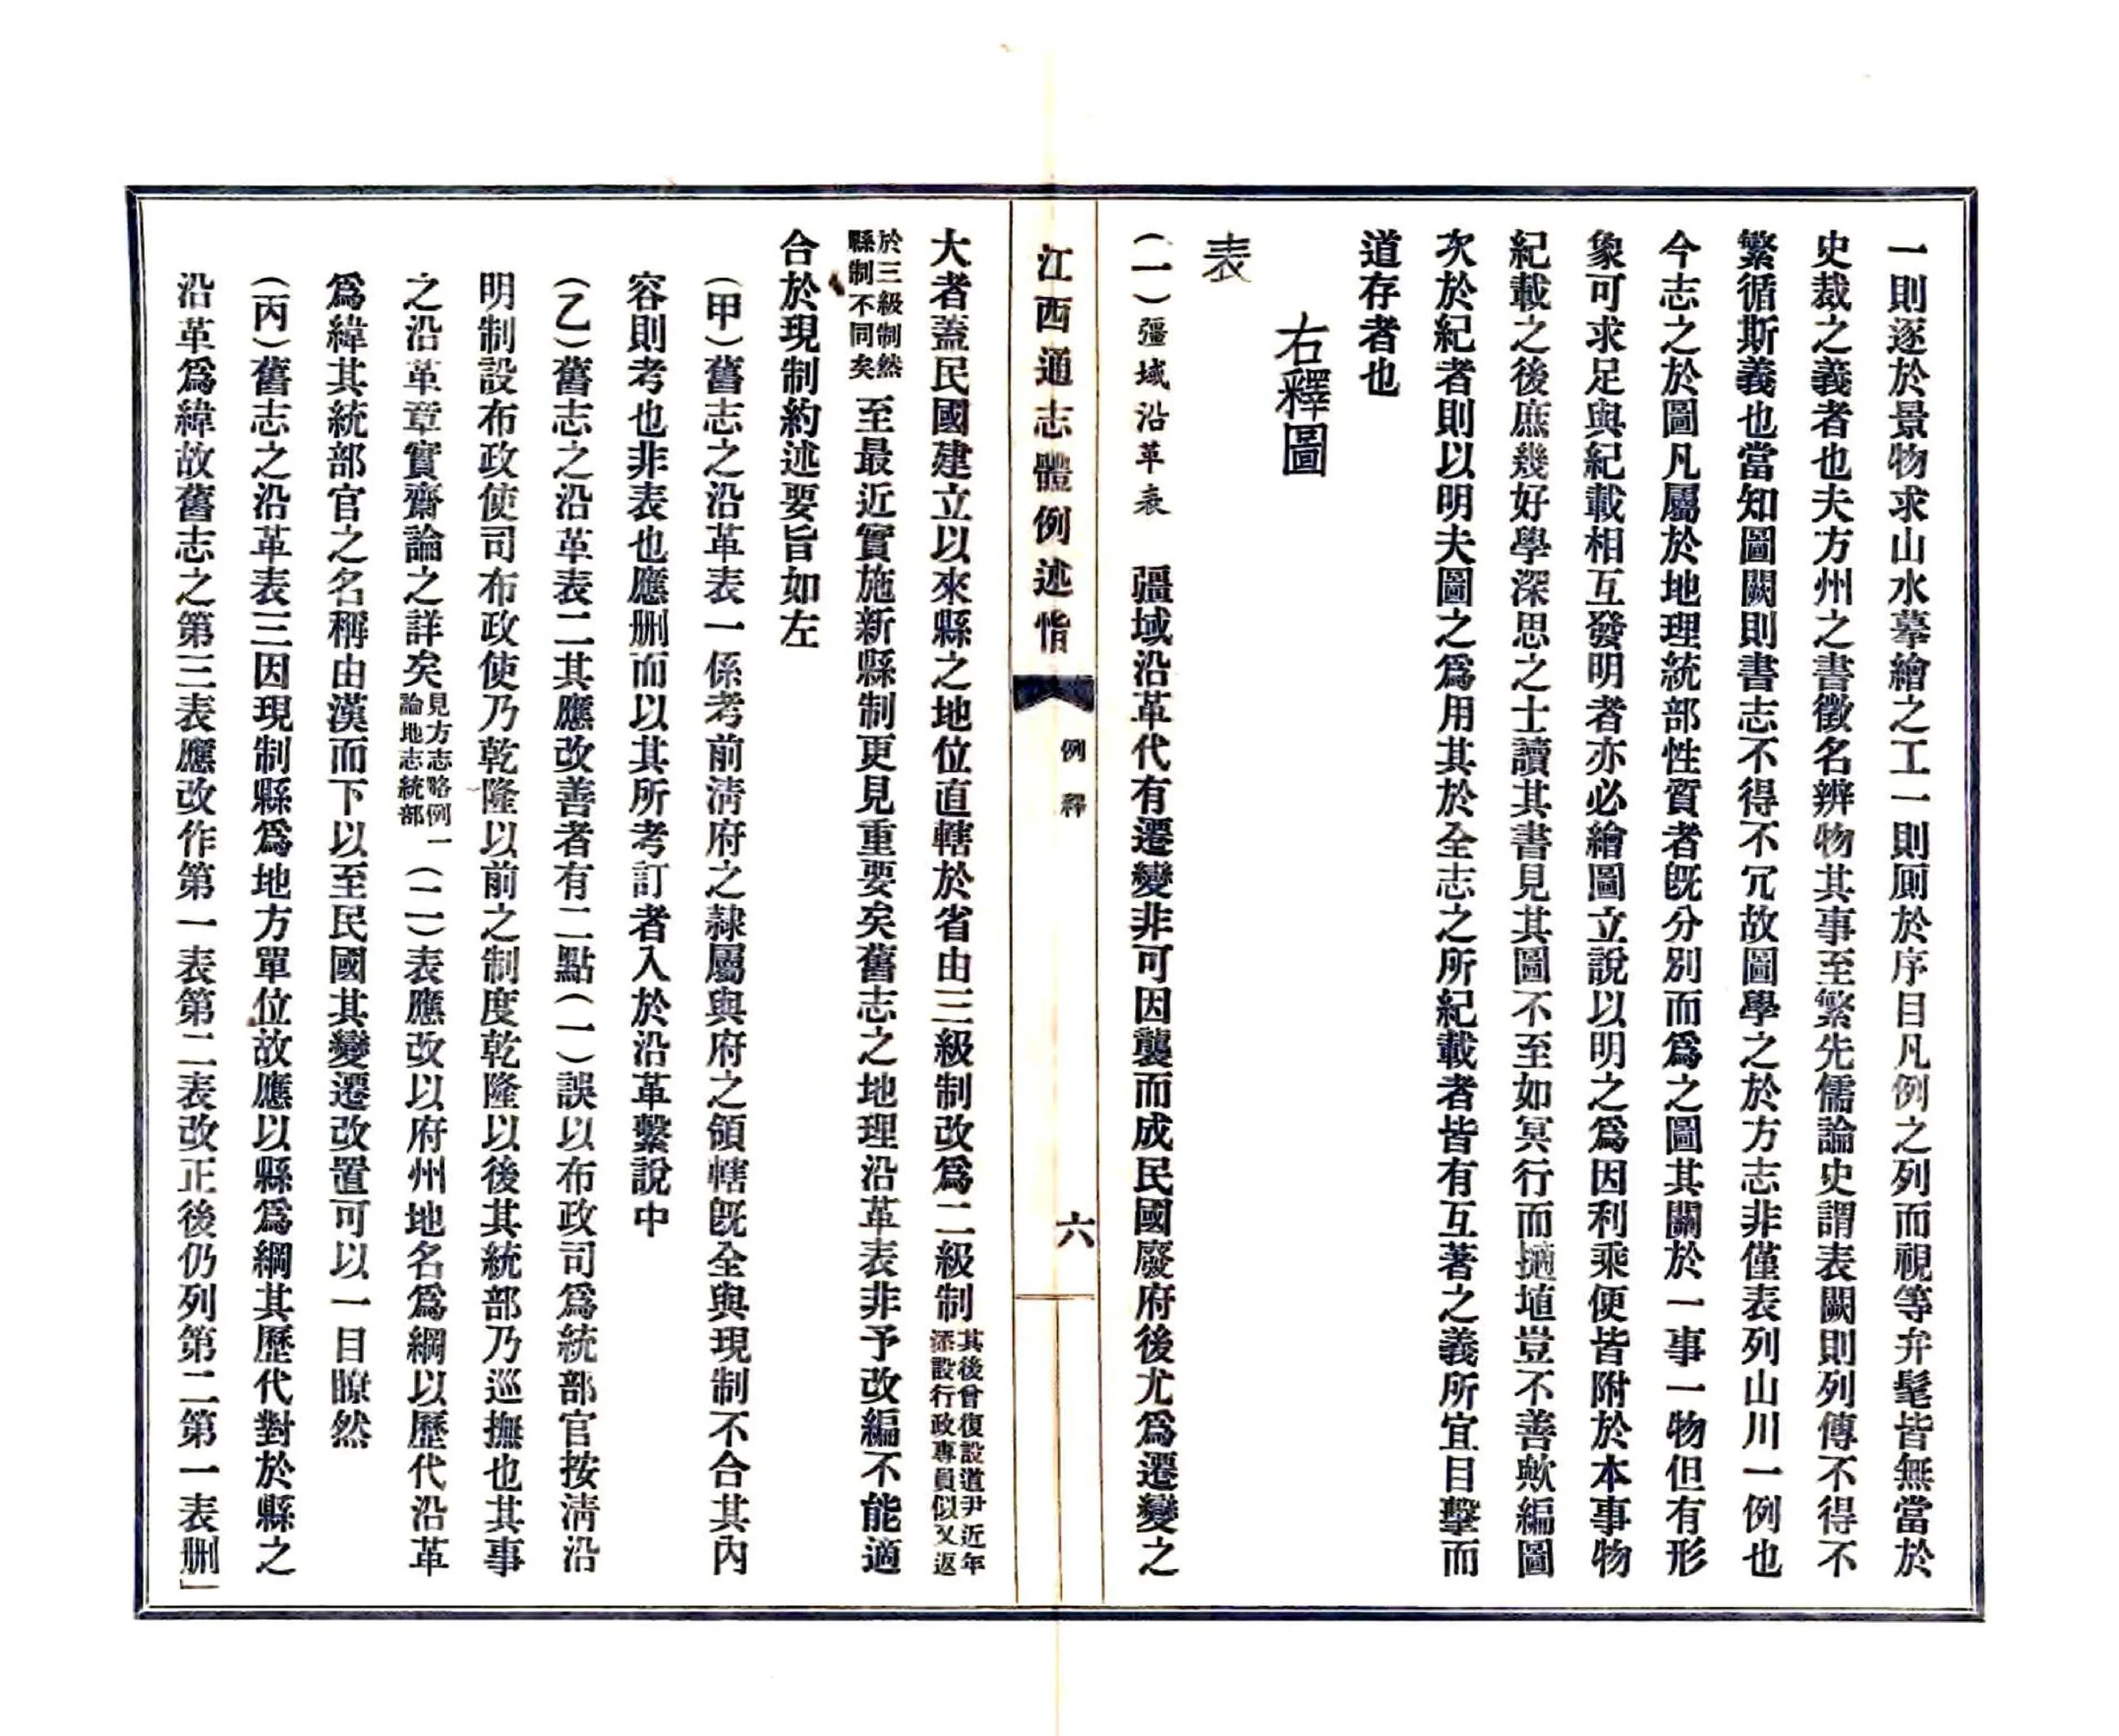 一則逐於景物求山水摹繪之工一則厠於序目凡例之列而視等弁髦皆無當於
史裁之義者也夫方州之書徵名辨物其事至繁先儒論史謂表闕則列傳不得不
繁循斯義也當知圖闕則書志不得不冗故圖學之於方志非僅表列山川一例也
今志之於圖凡屬於地理統部性質者既分別而爲之圖其關於一事一物但有形
象可求足與紀載相互發明者亦必繪圖立說以明之爲因利乘便皆附於本事物
紀載之後庶幾好學深思之士讀其書見其圖不至如冥行而擿埴豈不善歟編圖
次於紀者則以明夫圖之爲用其於全志之所紀載者皆有互著之義所宜目擊而
道存者也
右釋圖
表
(一)疆域沿革表 疆域沿革代有遷變非可因襲而成民國廢府後尤爲遷變之
江西通志體例述恉
例釋
六
大者蓋民國建立以來縣之地位直轄於省由三級制改爲二級制其後曾復設道尹近年添設行政專員似又返
於三級制然縣制不同矣至最近實施新縣制更見重要矣舊志之地理沿革表非予改編不能適
合於現制約述要旨如左
(甲)舊志之沿革表一係考前淸府之隷屬與府之領轄旣全與現制不合其內
容則考也非表也應刪而以其所考訂者入於沿革繫說中
(乙)舊志之沿革表二其應改善者有二點(一)誤以布政司爲統部官按淸沿
明制設布政使司布政使乃乾隆以前之制度乾隆以後其統部乃巡撫也其事
之沿革章實齋論之詳矣見方志略例一論地志統部(二)表應改以府州地名爲綱以歷代沿革
爲緯其統部官之名稱由漢而下以至民國其變遷改置可以一目瞭然
(丙)舊志之沿革表三因現制縣爲地方單位故應以縣爲綱其歷代對於縣之
沿革爲緯故舊志之第三表應改作第一表第二表改正後仍列第二第一表刪」